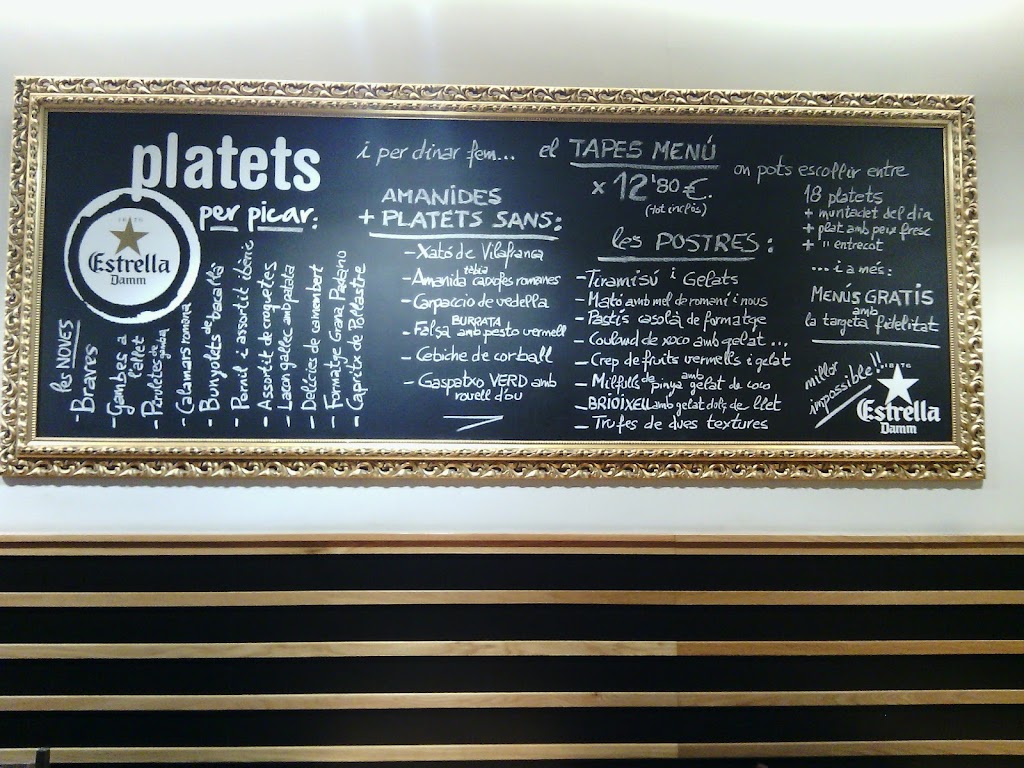 platets
per picar:
1876
Estrella
Damm
les NOVES
- Braves
- Gambes a l'allet
- Perletes de
- Calamars romana
- Bunyolets de bacallà
- Pernil i assortit ibèric
- Assortit de croquetes
- Lacon gallec amb patata
- Delícies de camembert
- Formatge Grana Padano
- Capritx de Pollastre
i per dinar fem... el TAPES MENÚ
x 12'80 €.
(tot inclòs)
on pots escollir entre
18 platets
+ muntadet del dia
+ plat amb peix fresc
+ " entrecot
... i a més:
MENÚS GRATIS
amb
la targeta fidelitat
millor
impossible!!
1876
Estrella
Damm
AMANIDES
+ PLATETS SANS:
- Xató de Vilafranca
- Amanida tèbia carxofes romanes
- Carpaccio de vedella
- Falsa BURRATA amb pesto vermell
- Cebiche de corball
- Gaspatxo VERD amb
rovell d'ou
les POSTRES:
- Tiramisú i Gelats
- Mató amb mel de romaní i nous
- Pastís casolà de formatge
- Couland de xoco amb gelat ...
- Crep de fruits vermells i gelat
- Milfulls de pinya amb gelat de coco
- BRIOIXELL amb gelat dolç de llet
- Trufes de dues textures